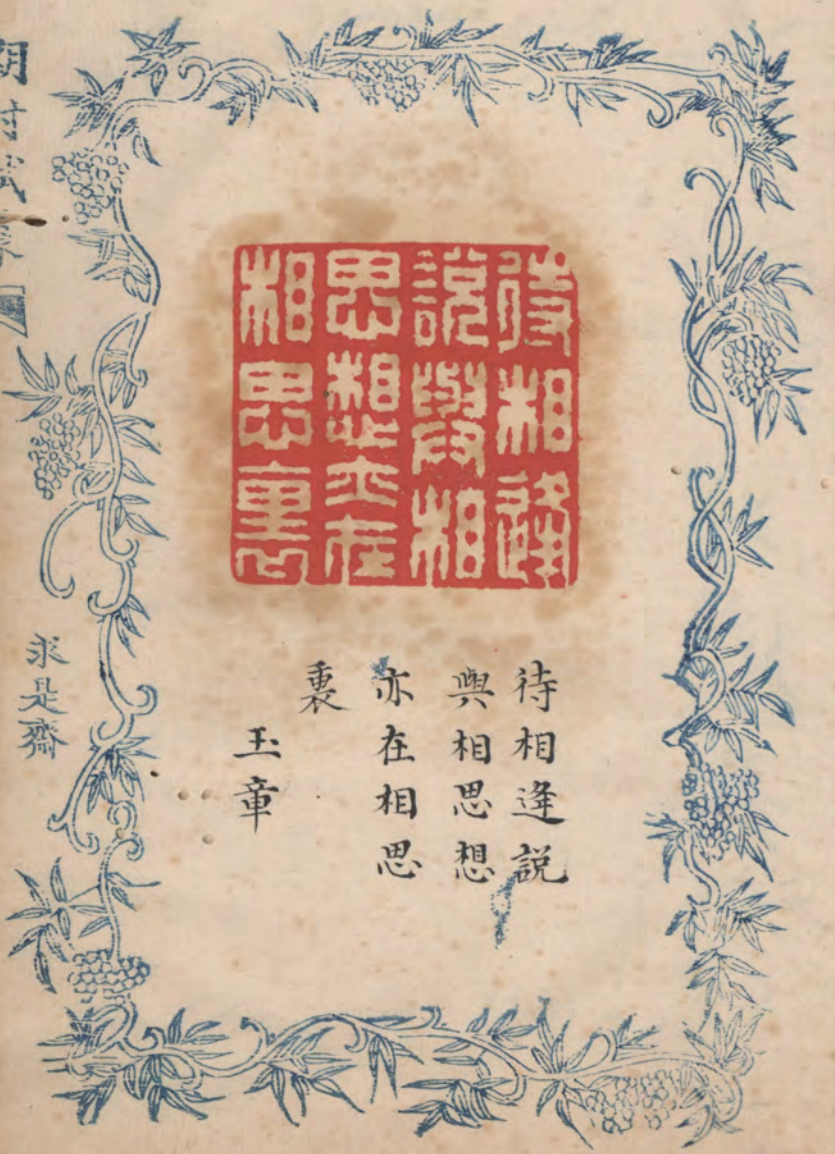 待相逢
說與相
思想亦在
相思裏
待相逢説
與相思想
亦在相思
裏
玉章
求是齋